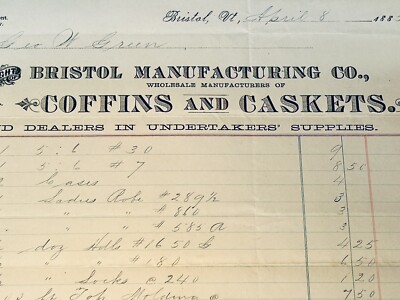 Bristol, Vt, April 8 188
Geo W Green
BRISTOL MANUFACTURING CO.,
WHOLESALE MANUFACTURERS OF
COFFINS AND CASKETS.
ND DEALERS IN UNDERTAKERS' SUPPLIES.
5:6 #30 9
5:6 #7 8 50
Cases 4
Ladies Robe #289½ 3
" " #860 3
" " #585 A 3
doz Hdls #1650 G 4 25
" " #180 6 50
" Socks @ 240 1 20
Molding @ 7 50